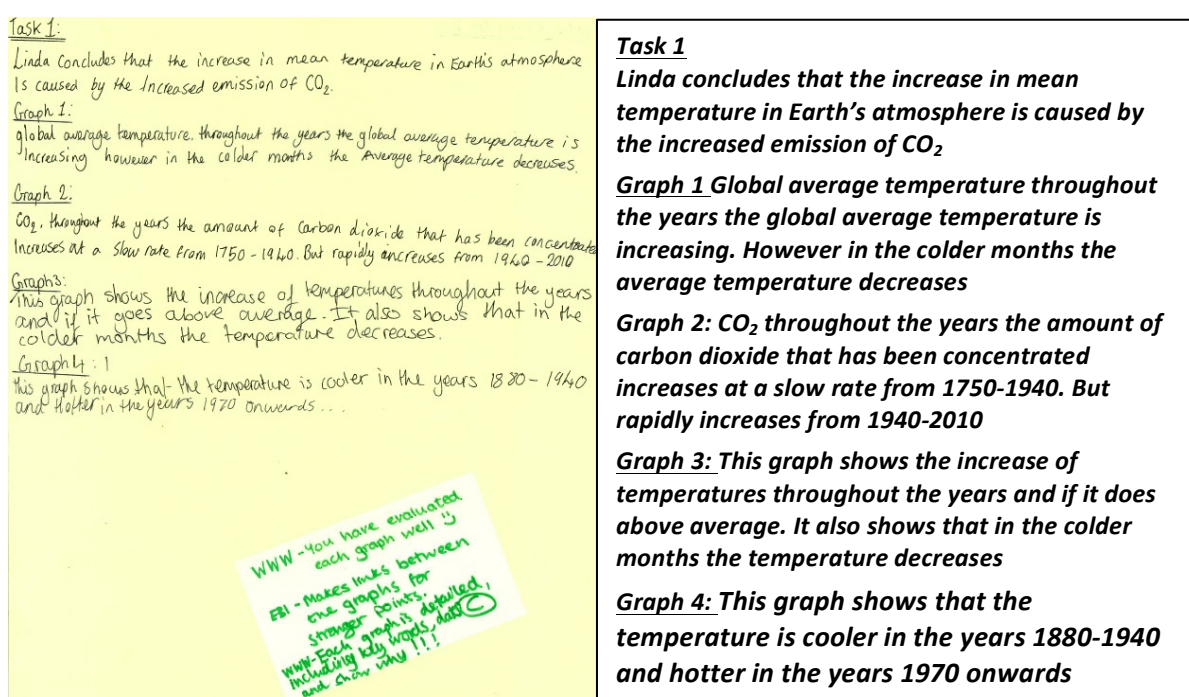 Task 1:
Linda Concludes that the increase in mean temperature in Earth's atmosphere
Is caused by the Increased emission of CO₂.
Graph 1:
global average temperature. throughout the years the global average temperature is
Increasing however in the colder months the Average temperature decreases.
Graph 2:
CO₂, throughout the years the amount of Carbon dioxide that has been concentrated
Increases at a slow rate from 1750-1940. But rapidly increases from 1940-2010
Graph3:
This graph shows the increase of temperatures throughout the years
and if it goes above average. It also shows that in the
colder months the temperature decreases.
Graph4: 1
this graph shows that the temperature is cooler in the years 1880-1940
and Hotter in the years 1970 onwards...
WWW - You have evaluated
each graph well
EBI - Makes links between
the graphs for
stronger points.
WWW - Each graph is detailed,
including key words, data
and show why!!!
C
Task 1
Linda concludes that the increase in mean
temperature in Earth's atmosphere is caused by
the increased emission of CO₂
Graph 1 Global average temperature throughout
the years the global average temperature is
increasing. However in the colder months the
average temperature decreases
Graph 2: CO₂ throughout the years the amount of
carbon dioxide that has been concentrated
increases at a slow rate from 1750-1940. But
rapidly increases from 1940-2010
Graph 3: This graph shows the increase of
temperatures throughout the years and if it does
above average. It also shows that in the colder
months the temperature decreases
Graph 4: This graph shows that the
temperature is cooler in the years 1880-1940
and hotter in the years 1970 onwards